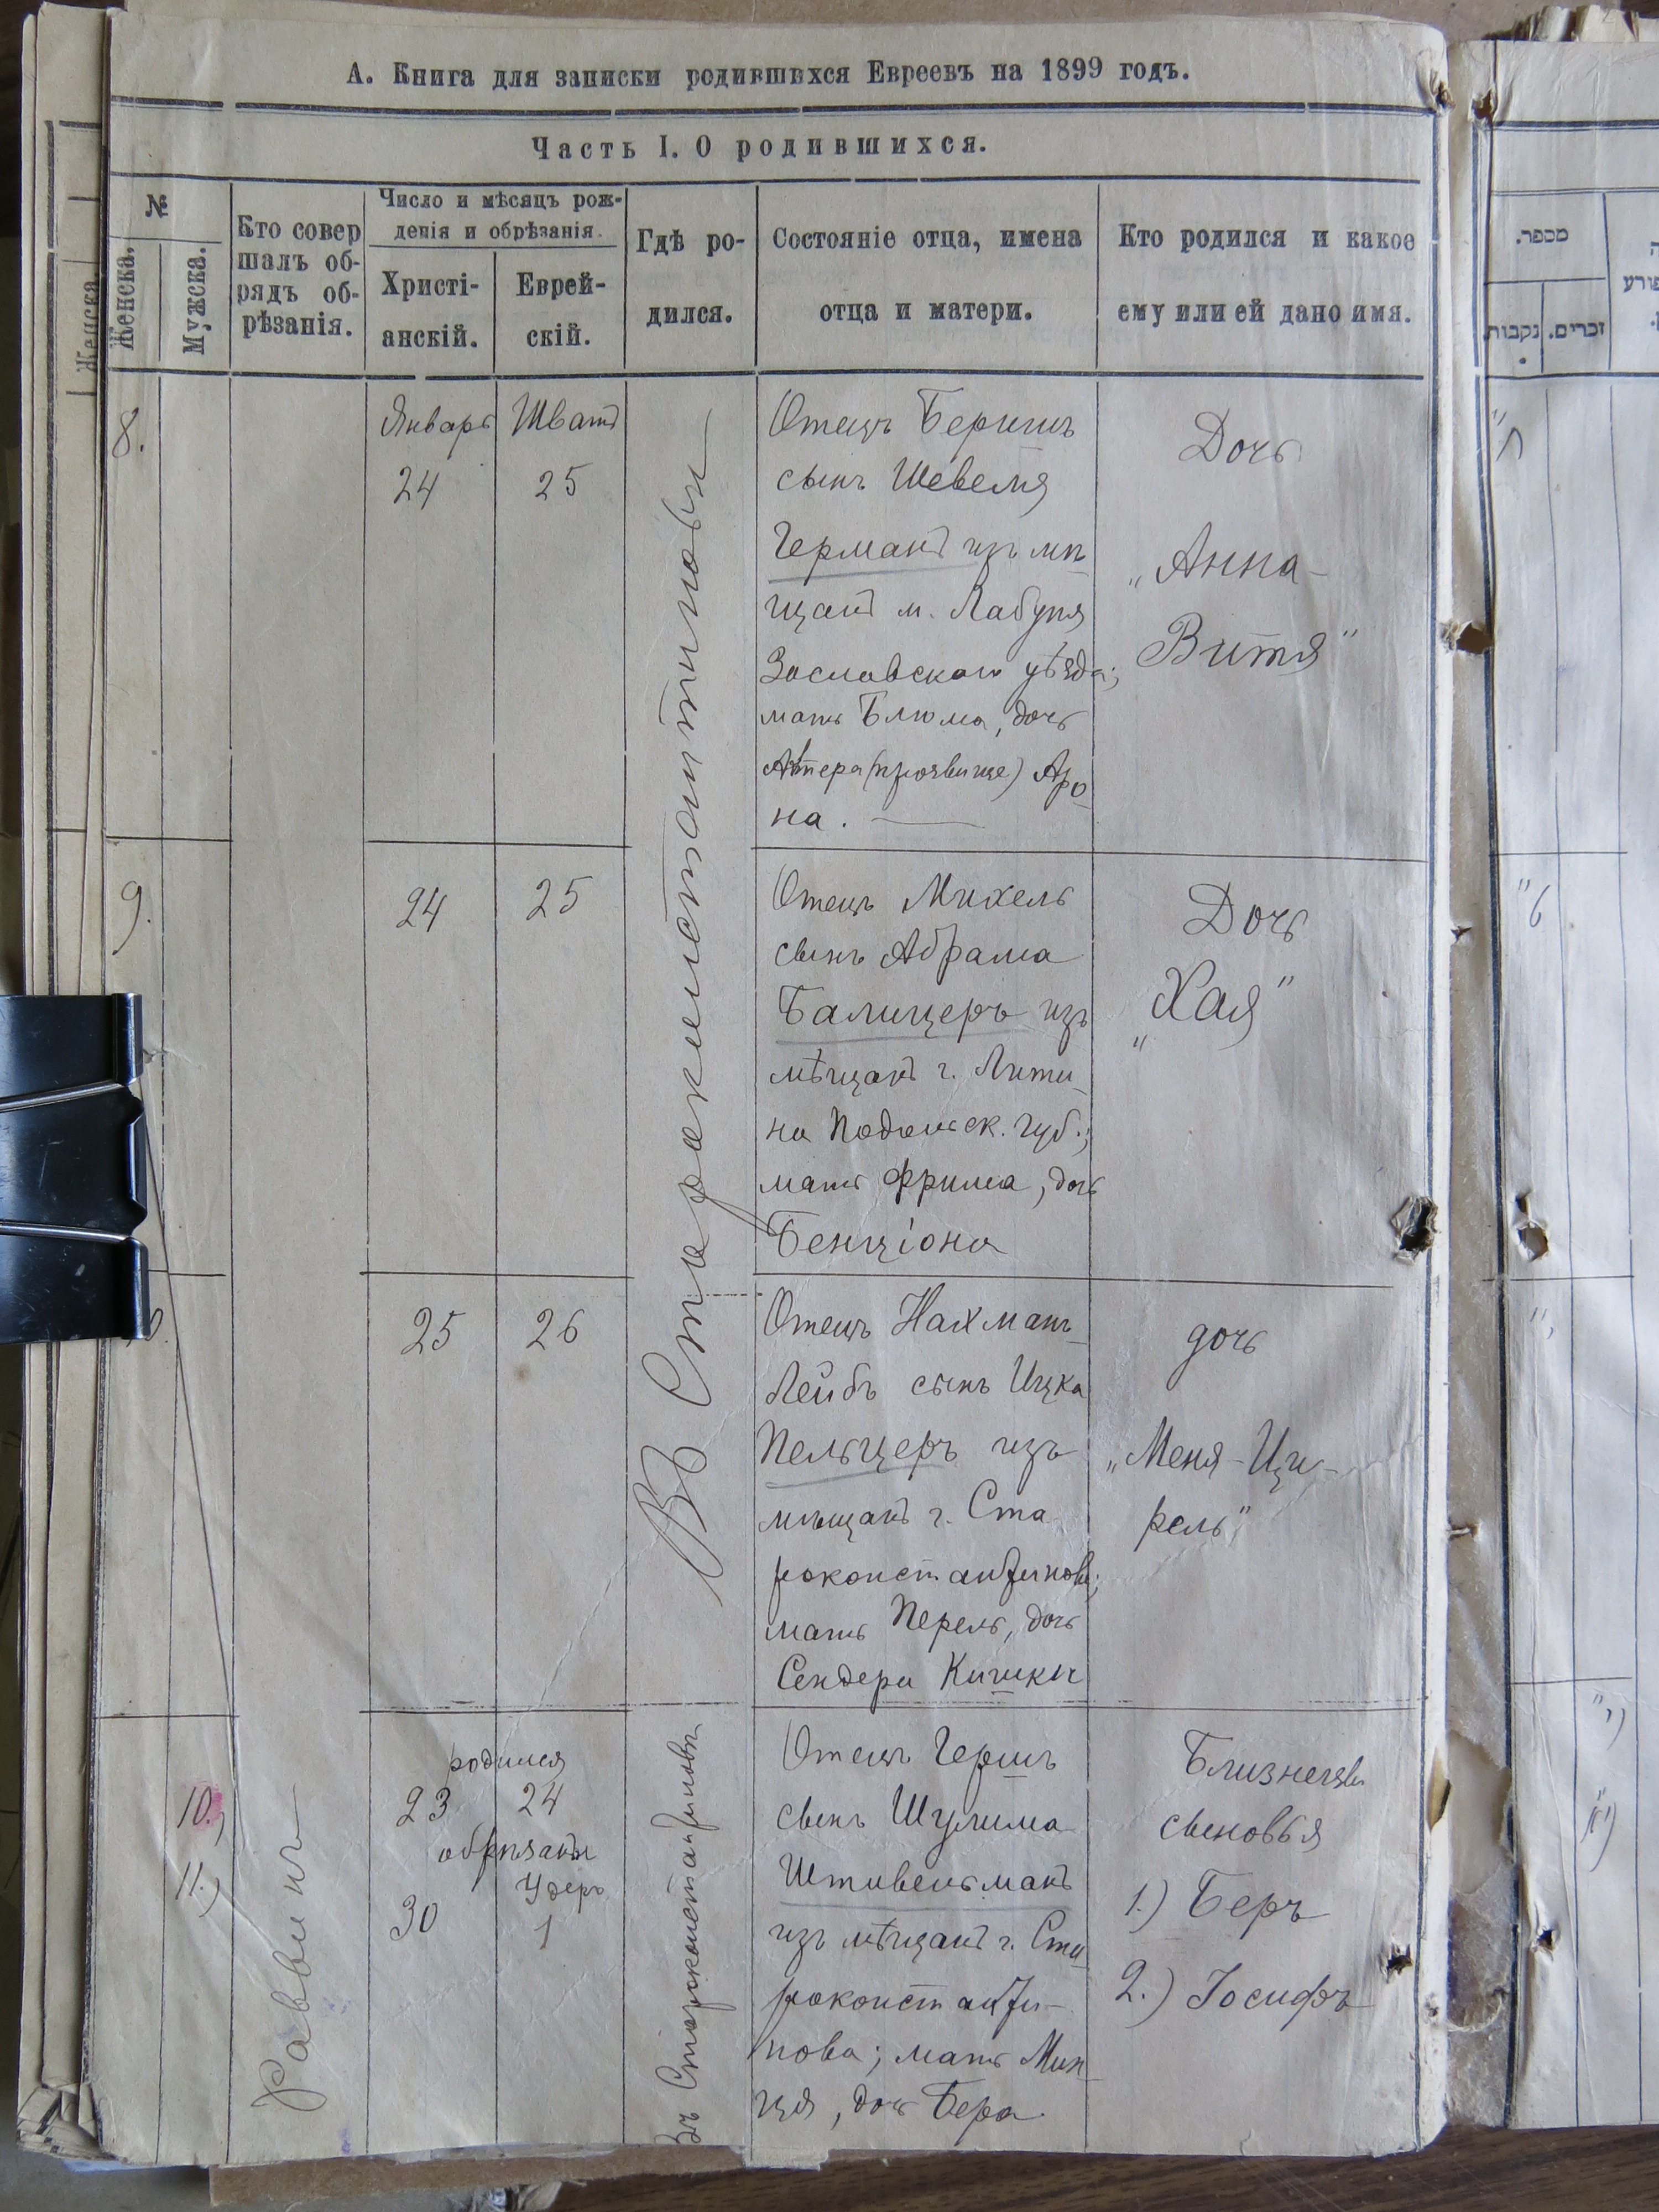 А. Книга для записки родившихся Евреевъ на 1899 годъ.
Часть I. О родившихся.
№
Женска.
Мужска.
Кто совер
шалъ об-
рядъ об-
рѣзанія.
Число и мѣсяцъ рож-
денія и обрѣзанія.
Христі-
анскій.
Еврей-
скій.
Гдѣ ро-
дился.
Состояніе отца, имена
отца и матери.
Кто родился и какое
ему или ей дано имя.
Женска.
מספר.
נקבות.
זכרים.
8.
Январь
24
Шватъ
25
Въ Староконстантиновѣ
Отецъ Беришъ
сынъ Шевеля
Германъ изъ мѣ
щанъ м. Лабуня
Заславскаго уѣзда;
мать Блюма, дочь
Алтера (прозвище) Аро
на.
Дочь
„Анна-
Витя"
9.
24
25
Отецъ Михель
сынъ Абрама
Балицеръ изъ
мѣщанъ г. Лити
на Подольск. губ.;
мать Фрима, дочь
Бенціона
Дочь
„Хая"
25
26
Отецъ Нахманъ
Лейбъ сынъ Ицка
Пельцеръ изъ
мѣщанъ г. Ста
роконстантинова;
мать Перель, дочь
Сендера Кишки
дочь
„Меня-Ци-
рель"
10.)
11.)
Раввинъ
родился
23
24
обрѣзаны
30
Удеръ
1
Въ Староконстантиновѣ
Отецъ Гершъ
сынъ Шулима
Штивельманъ
изъ мѣщанъ г. Ста
роконстанти-
нова; мать Мин
ця, дочь Бера
Близнецы
сыновья
1.) Беръ
2.) Іосифъ